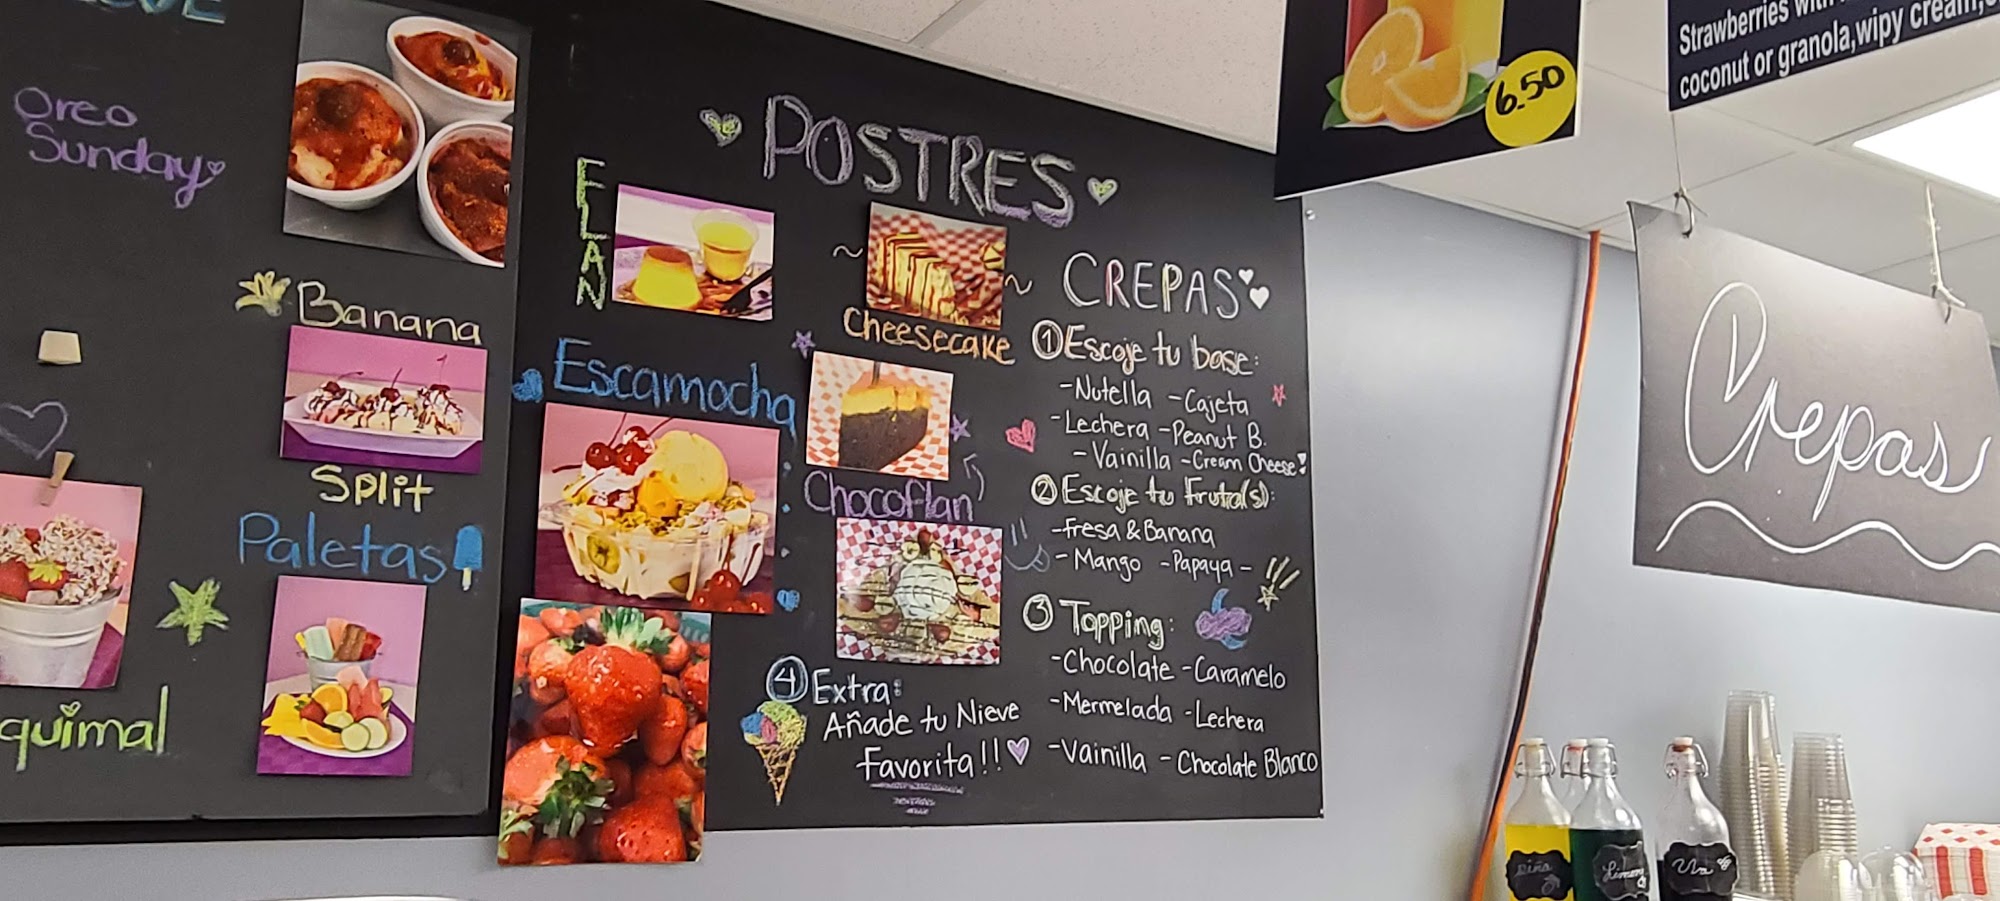 Oreo
Sunday
Banana
Split
Paletas
quimal
POSTRES
FLAN
Cheesecake
Escamocha
Chocoflan
CREPAS
1 Escoje tu base:
-Nutella -Cajeta
-Lechera -Peanut B.
-Vainilla -Cream Cheese!
2 Escoje tu Fruta(s):
-Fresa & Banana
-Mango -Papaya-
3 Topping:
-Chocolate -Caramelo
-Mermelada -Lechera
-Vainilla -Chocolate Blanco
4 Extra:
Añade tu Nieve
Favorita!!
6.50
Strawberries with
coconut or granola,wipy cream,
Crepas
piña
Limon
Uva